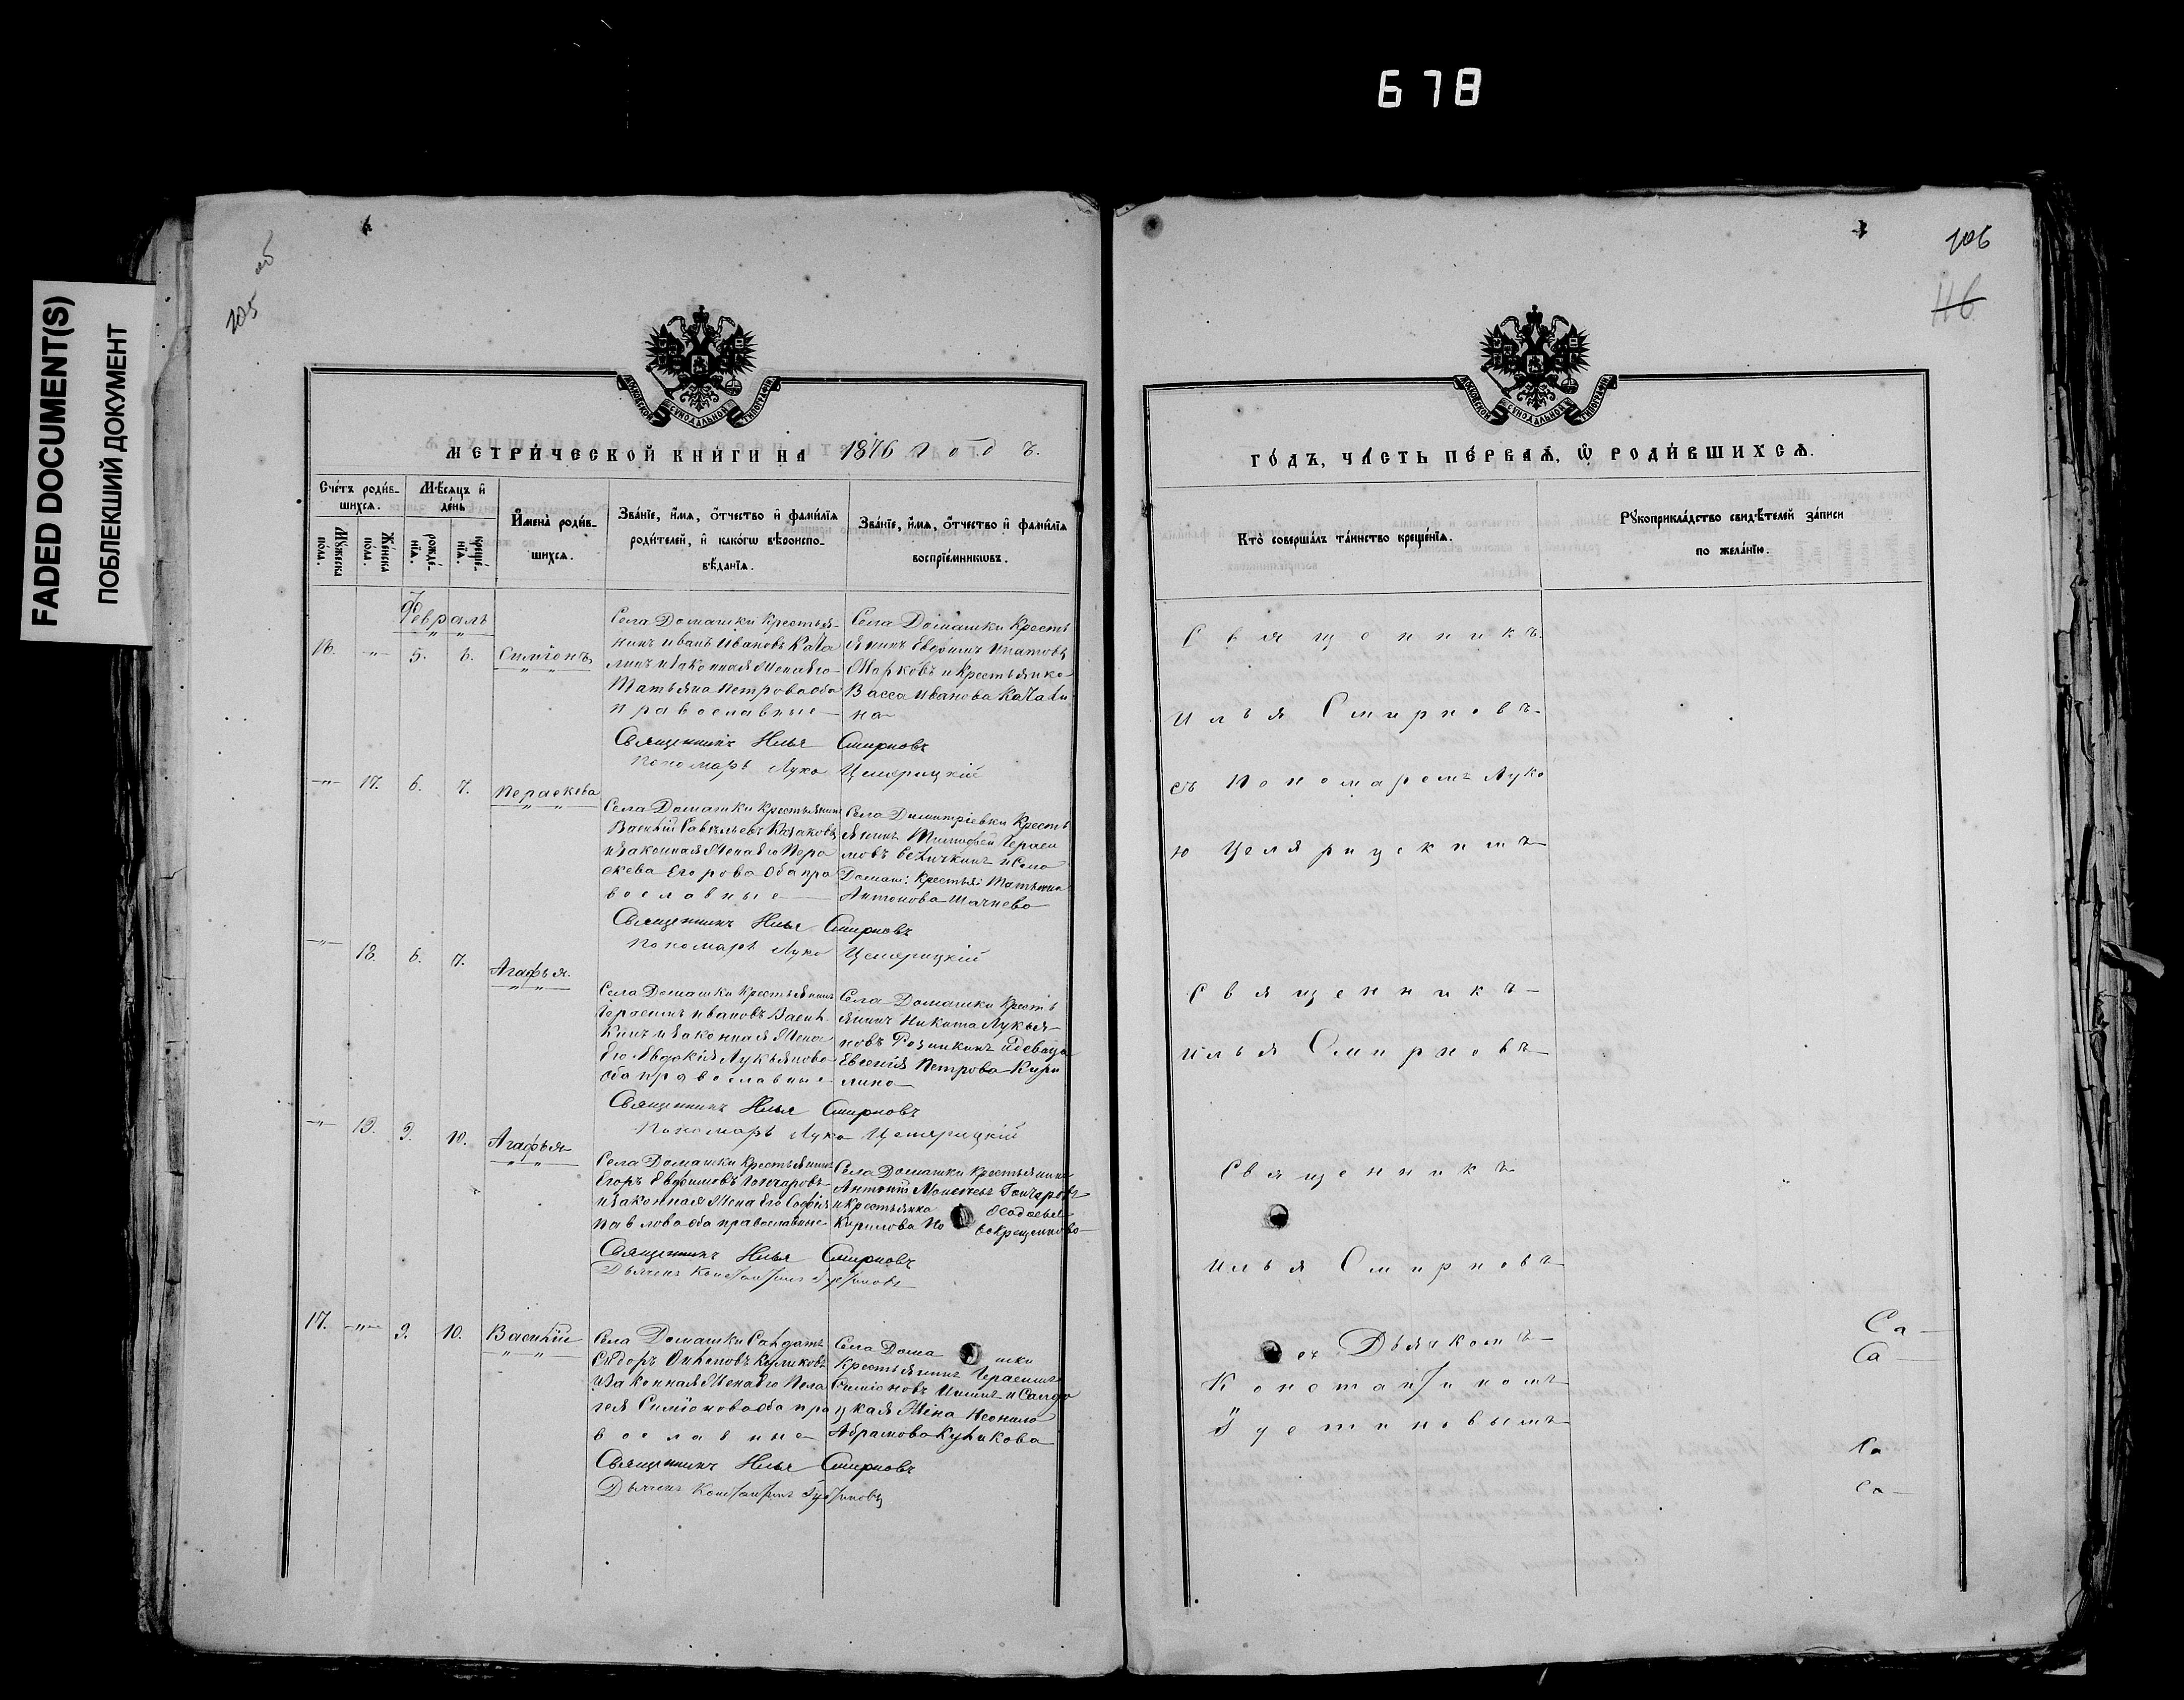 678
FADED DOCUMENT(S)
ПОБЛЕКШИЙ ДОКУМЕНТ
105 об
106
116
МОСКОВСКОЙ СѴНОДАЛЬНОЙ ТИПОГРАФІИ
МЕТРИ́ЧЕСКОЙ КНИ́ГИ НА 1876 годъ.
Сче́тъ роди́в-
шихсѧ.
Мꙋ́жеска по́ла.
Же́нска по́ла.
Мѣ́сѧцъ и҆ де́нь
рожде́-нїѧ.
креще́-нїѧ.
И҆мена̀ роди́в-
шихсѧ.
Зва́нїе, и҆́мѧ, ѻ҆́тчество и҆ фами́лїѧ
роди́телей, и҆ како́гѡ вѣ̀роиспо-
вѣ́данїѧ.
Зва́нїе, и҆́мѧ, ѻ҆́тчество и҆ фами́лїѧ
воспрїе́мникѡвъ.
Февраль
16. -"- 5. 6. Симіонъ
Села Домашки Крестья-
нинъ Иванъ Ивановъ Кала
линъ и законная жена его
Татьяна Петрова оба
православные
Села Домашки Кресть
янинъ Евфимъ Ипатовъ
Марковъ и Крестьянка
Васса Иванова
на
Священникъ Илья Смирновъ
Пономарь Лука Цемярицкій
-"- 17. 6. 7. Пераскева
Села Домашки Крестьянинъ
Василій Савельевъ Казаковъ
и законная жена его Пера
скева Егорова оба пра
вославные
Села Димитріевки Кресть
янинъ Тимофей Гераси
мовъ и Села
Домаш: Крестья: Татьяна
Антонова
Священникъ Илья Смирновъ
Пономарь Лука Цемярицкій
-"- 18. 6. 7. Агафья.
Села Домашки Крестьянинъ
Герасимъ Ивановъ Васил
кинъ и законная жена
его Евдокія Лукьянова
оба православные
Села Домашки Кресть
янинъ Никита Лукья-
новъ и девица
Евгенія Петрова Кири
лина
Священникъ Илья Смирновъ
Пономарь Лука Цемярицкій
-"- 19. 9. 10. Агафья
Села Домашки Крестьянинъ
Егоръ Евфимовъ Гончаровъ
и законная жена его Софія
Павлова оба православные
Села Домашки Крестьянинъ
Антоній Моисеевъ Гончаровъ
и Крестьянка Феодосья
Кирилова Но вокрещенова
Священникъ Илья Смирновъ
Дьячекъ Константинъ Густиновъ
17. -"- 9. 10. Василій
Села Домашки Салдатъ
Сидоръ Куликовъ
и законная жена его Пела
гея Симіонова оба пра
вославные
Села Дома шки
Крестьянинъ Герасимъ
Симіоновъ и Салда
цкая жена Неонила
Абрамова Куликова
Священникъ Илья Смирновъ
Дьячекъ Константинъ Густиновъ
МОСКОВСКОЙ СѴНОДАЛЬНОЙ ТИПОГРАФІИ
ГО́ДЪ, ЧА́СТЬ ПЕ́РВАѦ, Ѡ҆ РОДИ́ВШИХСѦ.
Кто̀ соверша́лъ та́инство креще́нїѧ.
Рꙋкоприкла́дство свидѣ́телей за́писи
по жела́нїю.
Священникъ
Илья Смирновъ
съ Пономаремъ Луко
ю Целярицскимъ
Священникъ
Илья Смирновъ
Священникъ
Илья Смирновъ
съ Дьячкомъ
Константиномъ
Густиновымъ
Са
Са
Са
Са